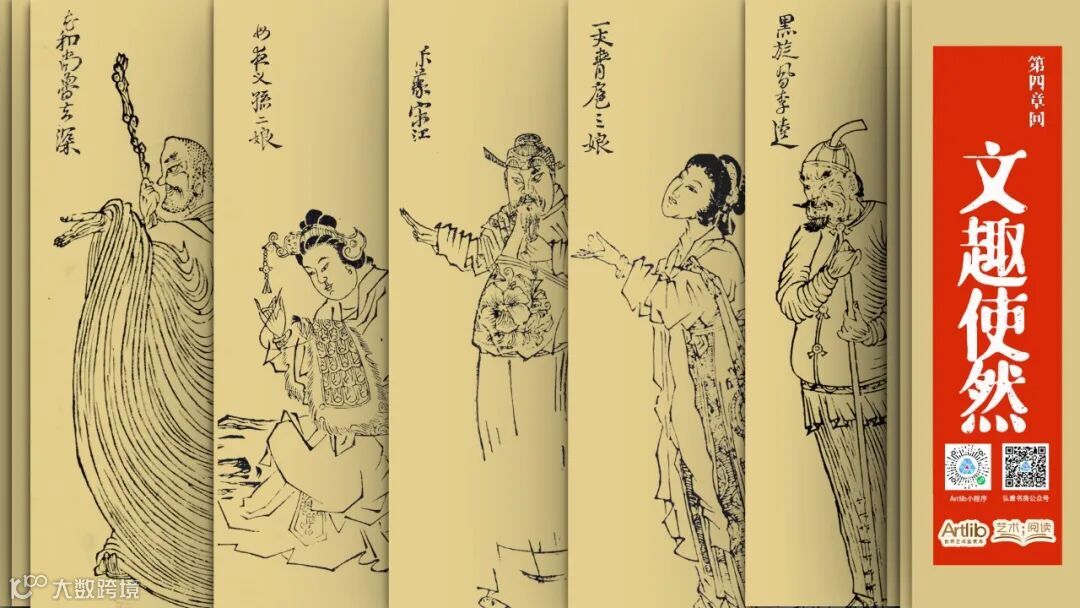 花和尚魯智深
母夜叉孫二娘
宋江
一丈青扈三娘
黑旋風李逵
第四章回
文趣使然
Artlib小程序
书房公众号
Artlib
世界艺术鉴赏库
艺术 阅读
大数跨境